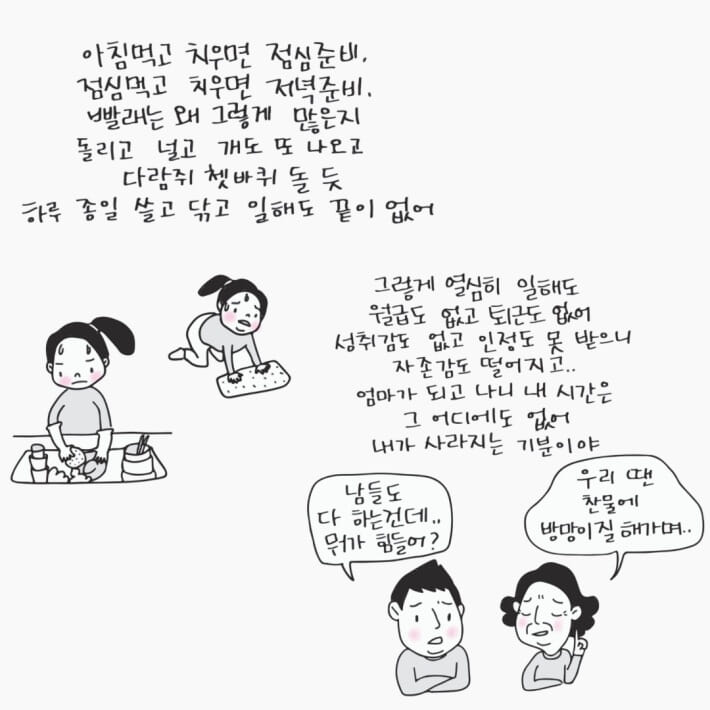 아침먹고 치우면 점심준비.
점심먹고 치우면 저녁준비.
빨래는 왜 그렇게 많은지
돌리고 널고 개도 또 나오고
다람쥐 쳇바퀴 돌 듯
하루 종일 쓸고 닦고 일해도 끝이 없어
그렇게 열심히 일해도
월급도 없고 퇴근도 없어
성취감도 없고 인정도 못 받으니
자존감도 떨어지고..
엄마가 되고 나니 내 시간은
그 어디에도 없어
내가 사라지는 기분이야
남들도
다 하는건데..
뭐가 힘들어?
우리 땐
찬물에
방망이질 해가며..